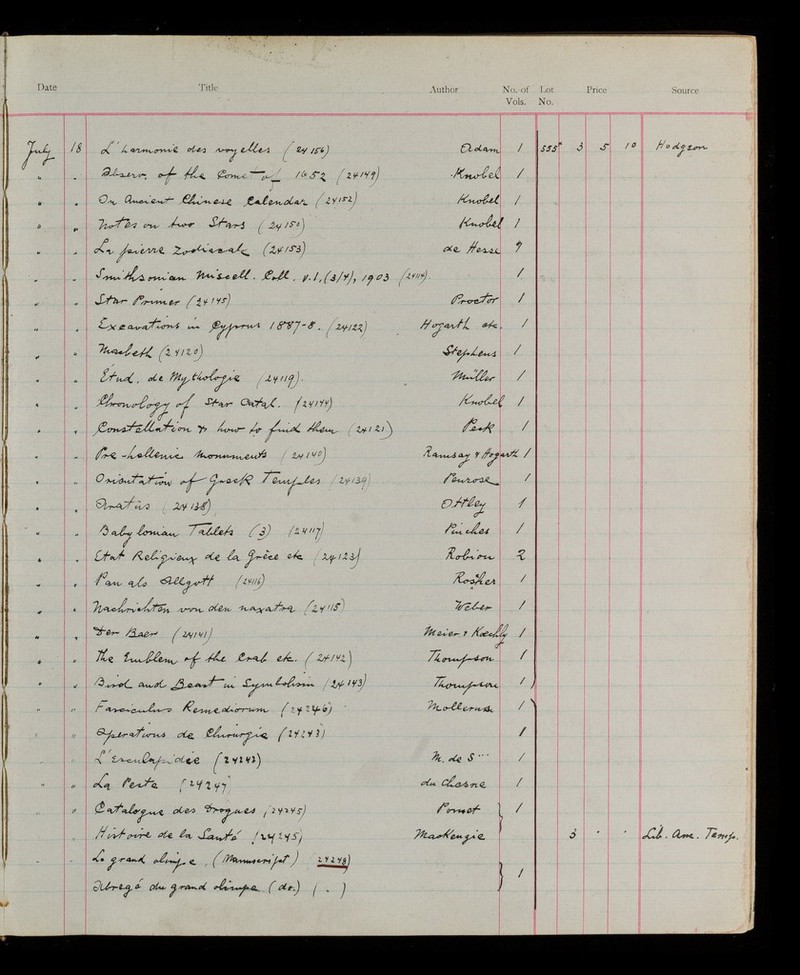 Date Title Author No. of Vols. Lot No. Price Source
July 18 L'harmonie des voyelles (24156) Adam 1 555 3 5 10 Hodgson
" " Observ. of the Comet of 1652 (24149) Knobel 1
" " On Ancient Chinese Calendar (24152) Knobel 1
" " Notes on two Stars (24150) Knobel 1
" " La pierre Zodiacale (24153) de Hesse
" " Smithsonian Miscell. Coll. v.1, (3/4), 1903 (24114). 1
" " Star Primer (24145) Proctor 1
" " Excavations in Cyprus 1887-8. (24122) Hogarth etc. 1
" " Macbeth (24120) Stephens 1
" " Etud. de Mythologie (24119). Müller 1
" " Chronology of Star Catal. (24144) Knobel 1
" " Constellation & how to find them (24121) Peck 1
" " Pre-hellenic monuments (24140) Ramsay & Hogarth 1
" " Orientation of Greek Temples (24139) Penrose 1
" " Aratus (24138) Ottley 1
" " Babylonian Tablets (3) (24117) Pinches 1
" " Etat Religieux de la Grèce etc (24123) Robiou 2
" " Pan als Allgott (24116) Roscher 1
" " Nachrichten von den naxatra (24115) Weber 1
" " Der Baer (24141) Meier & Koechly 1
" " The Emblem of the Crab etc. (24142) Thompson 1
" " Bird and Beast in Symbolism (24143) Thompson 1
" " Fasciculus Remediorum (24246) Mollerus 1
" " Operations de Chirurgie (24243) 1
" " L'Esculapidée (24242) M. de S... 1
" " La Peste (24247) du Chesne 1
" " Catalogue des Drogues (24245) Pomet 1
" " Histoire de la Santé (24245) MacKenzie 3 . . Lib. Anc. Temp.
" " Le grand olimpe, (Manuscript) 24248)
Abregé du grand olimpe (do.) ( . ) 1